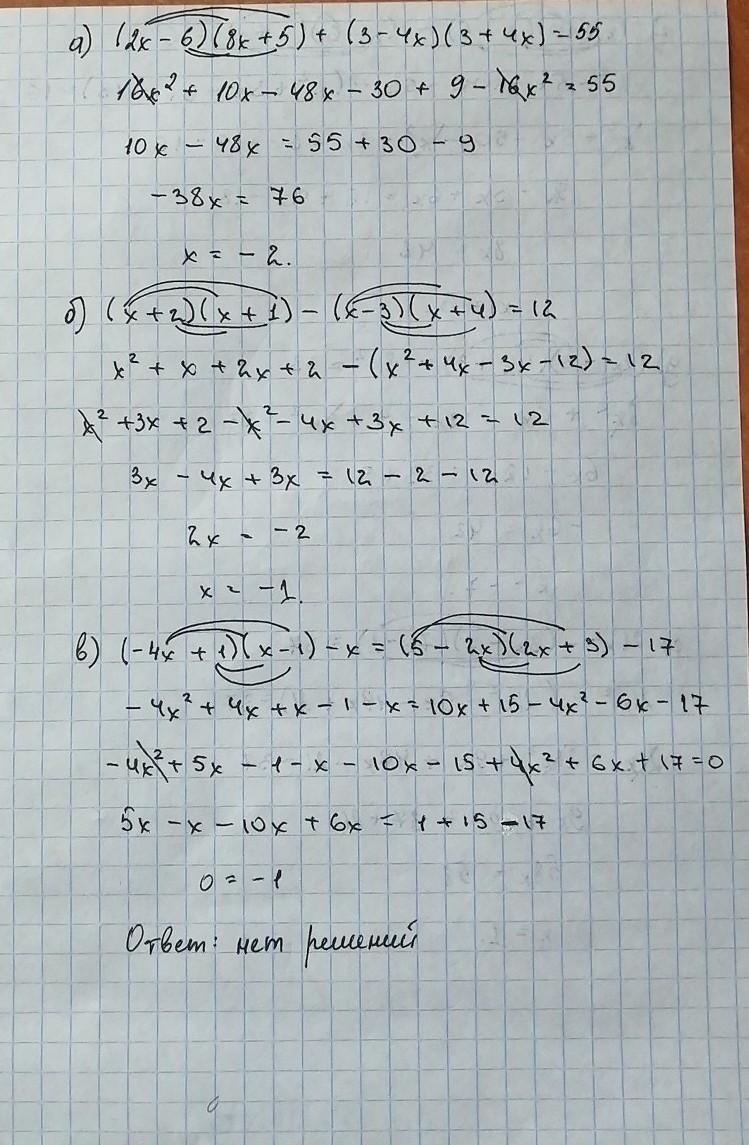 а) (2x - 6)(8x + 5) + (3 - 4x)(3 + 4x) = 55
16x² + 10x - 48x - 30 + 9 - 16x² = 55
10x - 48x = 55 + 30 - 9
-38x = 76
x = -2.
б) (x + 2)(x + 1) - (x - 3)(x + 4) = 12
x² + x + 2x + 2 - (x² + 4x - 3x - 12) = 12
x² + 3x + 2 - x² - 4x + 3x + 12 = 12
3x - 4x + 3x = 12 - 2 - 12
2x = -2
x = -1.
в) (-4x + 1)(x - 1) - x = (5 - 2x)(2x + 3) - 17
-4x² + 4x + x - 1 - x = 10x + 15 - 4x² - 6x - 17
-4x² + 5x - 1 - x - 10x - 15 + 4x² + 6x + 17 = 0
5x - x - 10x + 6x = 1 + 15 - 17
0 = -1
Ответ: нет решений